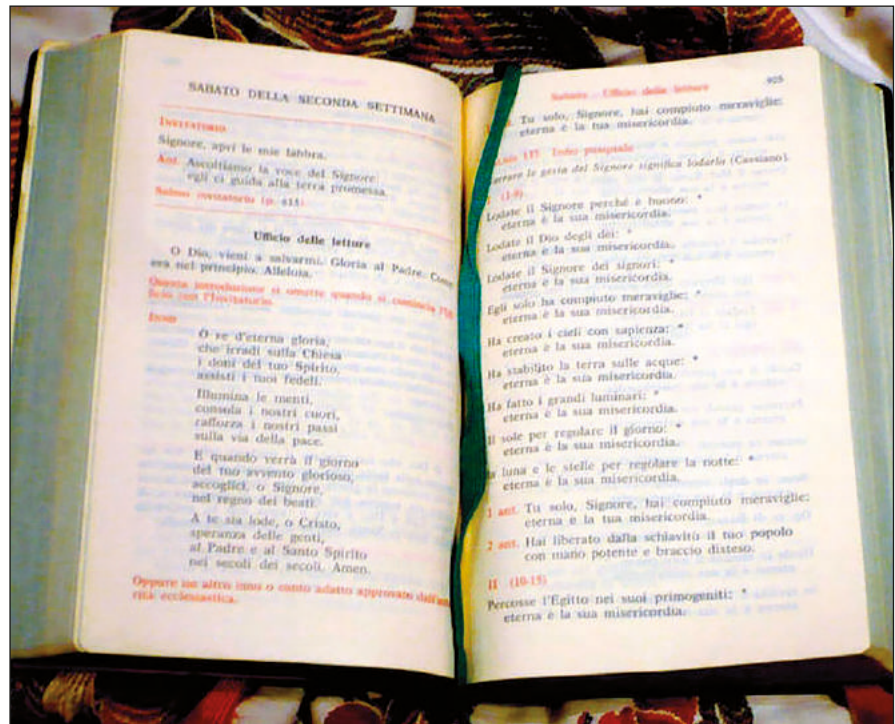 SABATO DELLA SECONDA SETTIMANA
INVITATORIO
Signore, apri le mie labbra.
Ant. Ascoltiamo la voce del Signore:
egli ci guida alla terra promessa.
Salmo invitatorio (p.
Ufficio delle letture
O Dio, vieni a salvarmi. Gloria al Padre. Come
era nel principio. Alleluia.
Questa introduzione si omette quando si comincia
ficio con l'Invitatorio.
INNO
O re d'eterna gloria,
che irradi sulla Chiesa
i doni del tuo Spirito,
assisti i tuoi fedeli.
Illumina le menti,
consola i nostri cuori,
rafforza i nostri passi
sulla via della pace.
E quando verrà il giorno
del tuo avvento glorioso,
accoglici, o Signore,
nel regno dei beati.
A te sia lode, o Cristo,
speranza delle genti,
al Padre e al Santo Spirito
nei secoli dei secoli. Amen.
Oppure un altro inno o canto adatto approvato dall'auto
rità ecclesiastica.
Sabato - Ufficio delle letture
Tu solo, Signore, hai compiuto meraviglie:
eterna è la tua misericordia.
Inno pasquale
le gesta del Signore significa lodarlo (Cassiano).
I (1-9)
Lodate il Signore perché è buono: *
eterna è la sua misericordia.
Lodate il Dio degli dei: *
eterna è la sua misericordia.
Lodate il Signore dei signori: *
eterna è la sua misericordia.
Egli solo ha compiuto meraviglie: *
eterna è la sua misericordia.
Ha creato i cieli con sapienza: *
eterna è la sua misericordia.
Ha stabilito la terra sulle acque: *
eterna è la sua misericordia.
Ha fatto i grandi luminari: *
eterna è la sua misericordia.
Il sole per regolare il giorno: *
eterna è la sua misericordia.
la luna e le stelle per regolare la notte: *
eterna è la sua misericordia.
1 ant. Tu solo, Signore, hai compiuto meraviglie:
eterna è la tua misericordia.
2 ant. Hai liberato dalla schiavitù il tuo popolo
con mano potente e braccio disteso.
II (10-15)
Percosse l'Egitto nei suoi primogeniti: *
eterna è la sua misericordia.